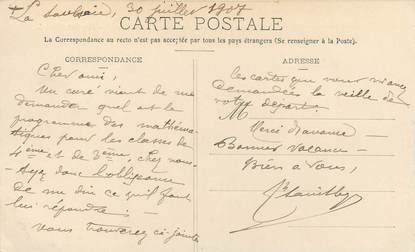 La 30 juillet 1907
CARTE POSTALE
La Correspondance au recto n'est pas acceptée par tous les pays étrangers (Se renseigner à la Poste).
CORRESPONDANCE
Cher ami,
Un curé vient de me
demander quel est le
programme des mathéma-
tiques pour les classes de
4ème et de 3ème, chez vous.
Ayez donc l'obligeance
de me dire ce qu'il faut
lui répondre.
Vous trouverez ci-joint
ADRESSE
les cartes que vous m'aviez
demandées la veille de
votre départ.
M
Merci d'avance
Bonnes vacances
Bien à vous,